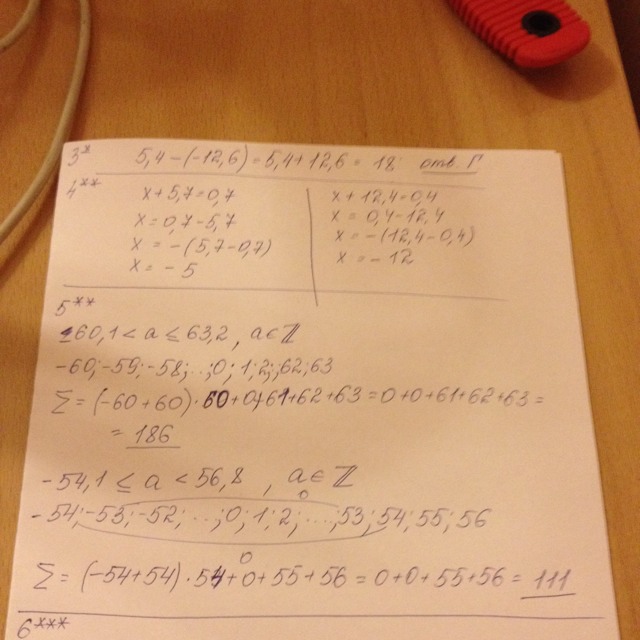 3* 5,4-(-12,6)=5,4+12,6=18 отв. Г
4** x+5,7=0,7
x=0,7-5,7
x=-(5,7-0,7)
x=-5
x+12,4=0,4
x=0,4-12,4
x=-(12,4-0,4)
x=-12
5**
-60,1<a≤63,2, a∈ℤ
-60;-59;-58;...;0;1;2;...;62;63
Σ=(-60+60)·60+0+61+62+63=0+0+61+62+63=
=186
-54,1≤a<56,8, a∈ℤ
0
-54;-53;-52;...;0;1;2;...;53;54;55;56
0
Σ=(-54+54)·54+0+55+56=0+0+55+56=111
6***